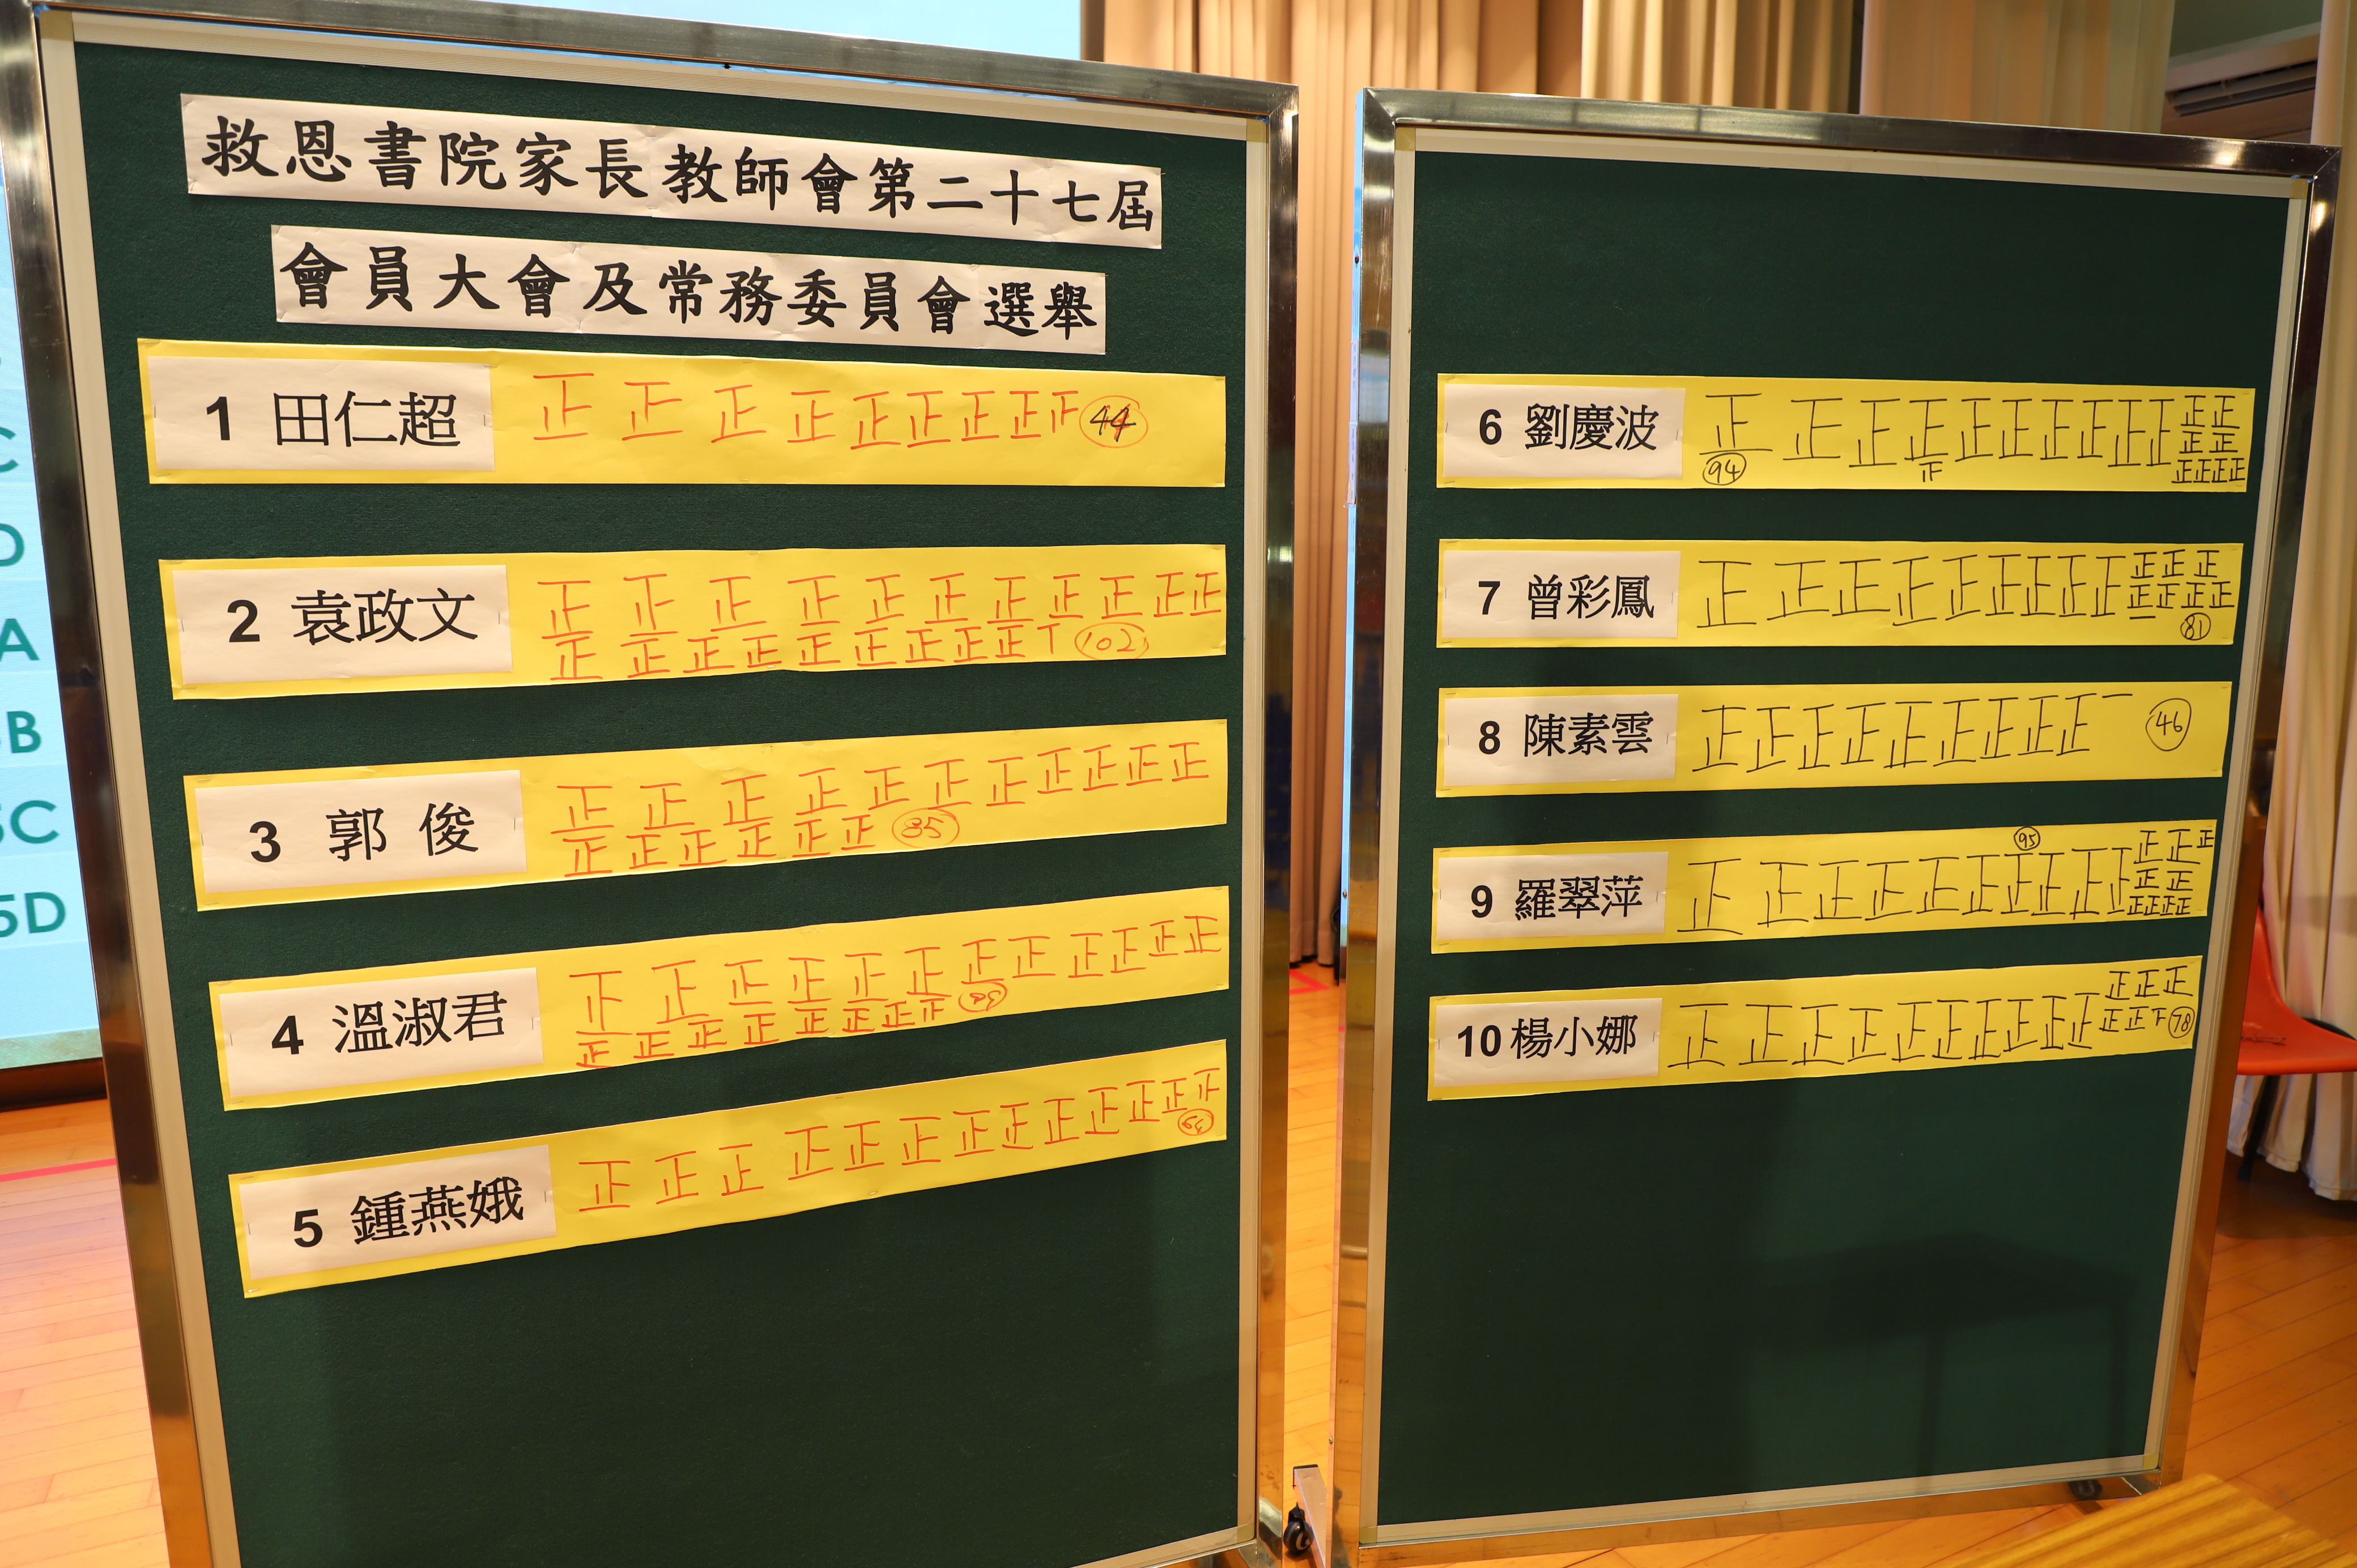 救恩書院家長教師會第二十七屆
會員大會及常務委員會選舉
1 田仁超 正正正正正正正正 44
2 袁政文 正正正正正正正正正正正
正正正正正正正正正丅 102
3 郭俊 正正正正正正正正正正正
正正正正正正 85
4 溫淑君 正正正正正正正正正正正正
正正正正正正正
5 鍾燕娥 正正正正正正正正正正正正
64
6 劉慶波 正正正正正正正正正正 正正
正正
94 正 正正正正
7 曾彩鳳 正正正正正正正正正 正正正
正正正正
一 81
8 陳素雲 正正正正正正正正正一 46
9 羅翠萍 正正正正正正正正正正 95 正正正
正正
正正正正
10 楊小娜 正正正正正正正正正正 正正正
正正下 78
C
D
A
B
5C
5D